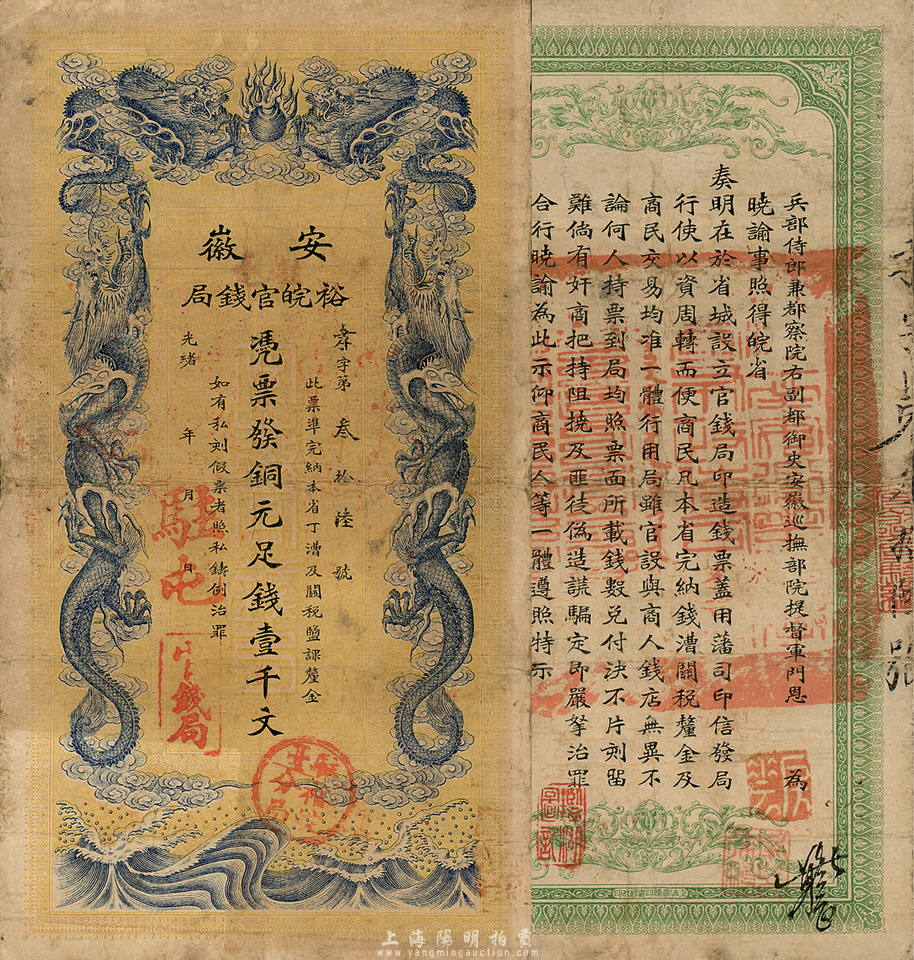 安徽
裕皖官錢局
字第叁拾陸號
此票準完納本省丁漕及關税鹽課釐金
憑票發銅元足錢壹千文
如有私刻假票者照私鑄例治罪
光緒 年 月 日
兵部侍郎兼都察院右副都御史安徽巡撫部院提督軍門恩 為
曉諭事照得皖省
奏明在於省城設立官錢局印造錢票蓋用藩司印信發局
行使以資周轉而便商民凡本省完納錢漕關税釐金及
商民交易均准一體行用局雖官設與商人錢店無異不
論何人持票到局均照票面所載錢数兑付決不片刻留
難倘有奸商把持阻撓及匪徒偽造謊騙定即嚴拏治罪
合行曉諭為此示仰商民人等一體遵照特示
號
上海陽明拍賣
www.yangmingauction.com